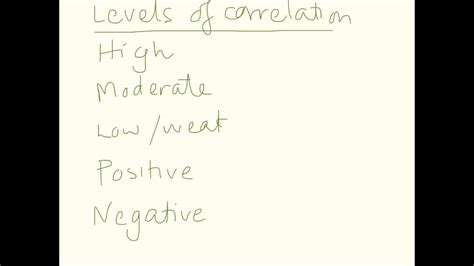 Levels of correlation
High
Moderate
Low/weak
Positive
Negative